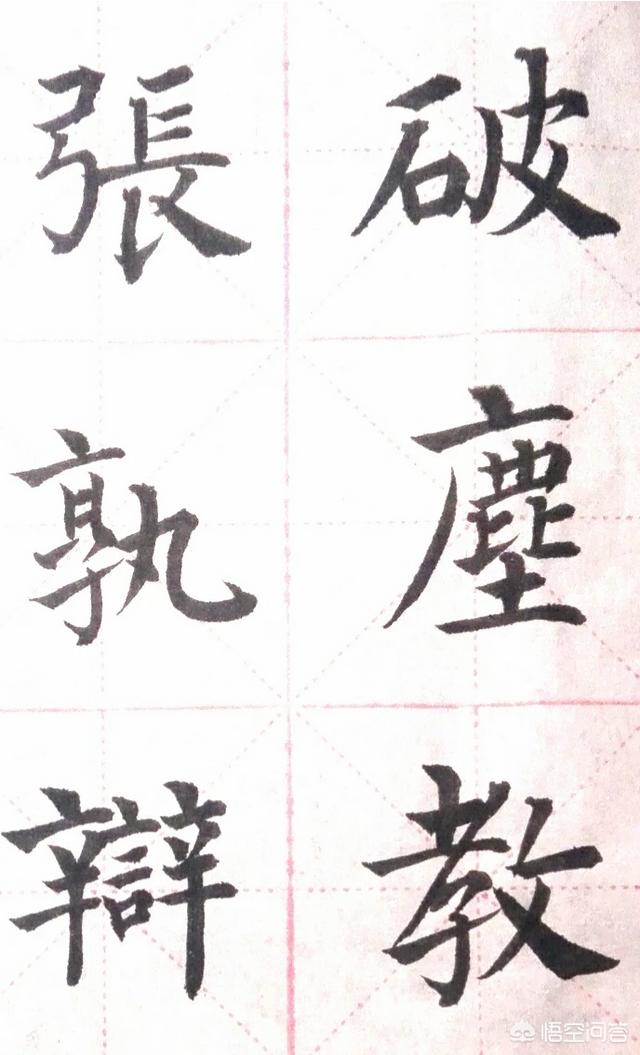 破塵教
張孰辯
悟空问答